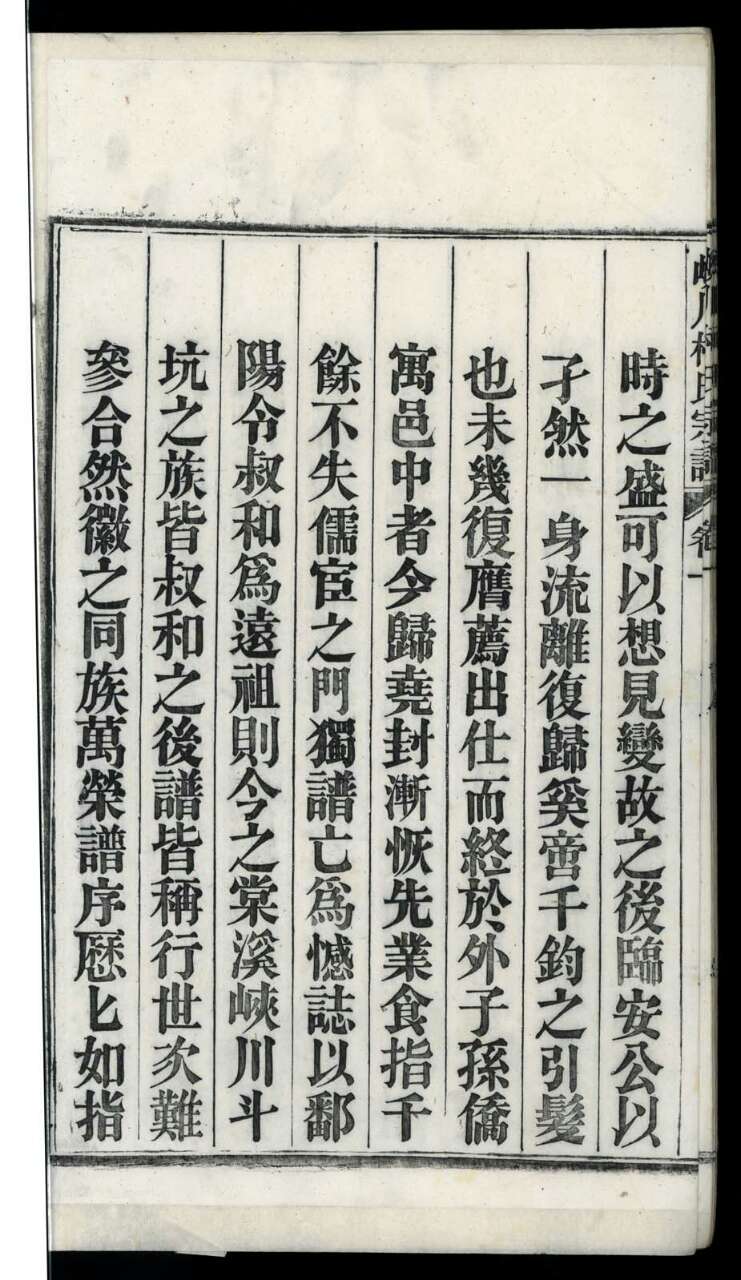 峽川柯氏宗譜 卷一
時之盛可以想見變故之後臨安公以
孑然一身流離復歸奚啻千鈞之引髮
也未幾復膺薦出仕而終於外子孫僑
寓邑中者今歸堯封漸恢先業食指千
餘不失儒宦之門獨譜亡爲憾誌以鄱
陽令叔和爲遠祖則今之棠溪峽川斗
坑之族皆叔和之後譜皆稱行世次難
參合然徽之同族萬榮譜序歷匕如指